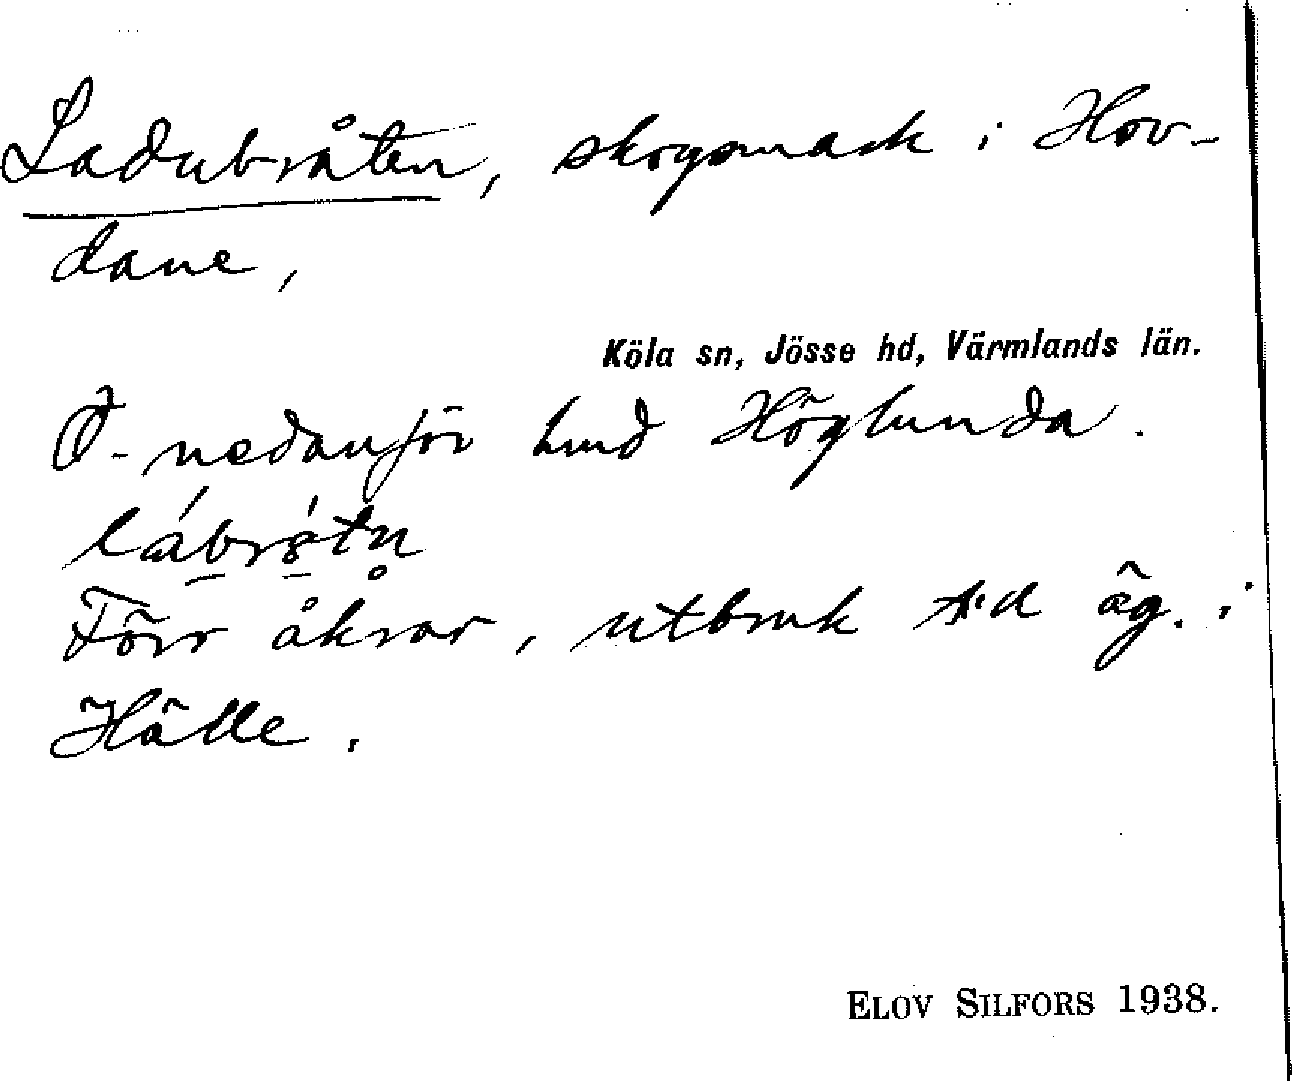 Ladubråten, skogsmark i Hov-
dane,
Köla sn, Jösse hd, Värmlands län.
Ö. nedanför Höglunda.
Förr åkrar, utbruk äg. i
Hälle.
ELOV SILFORS 1938.